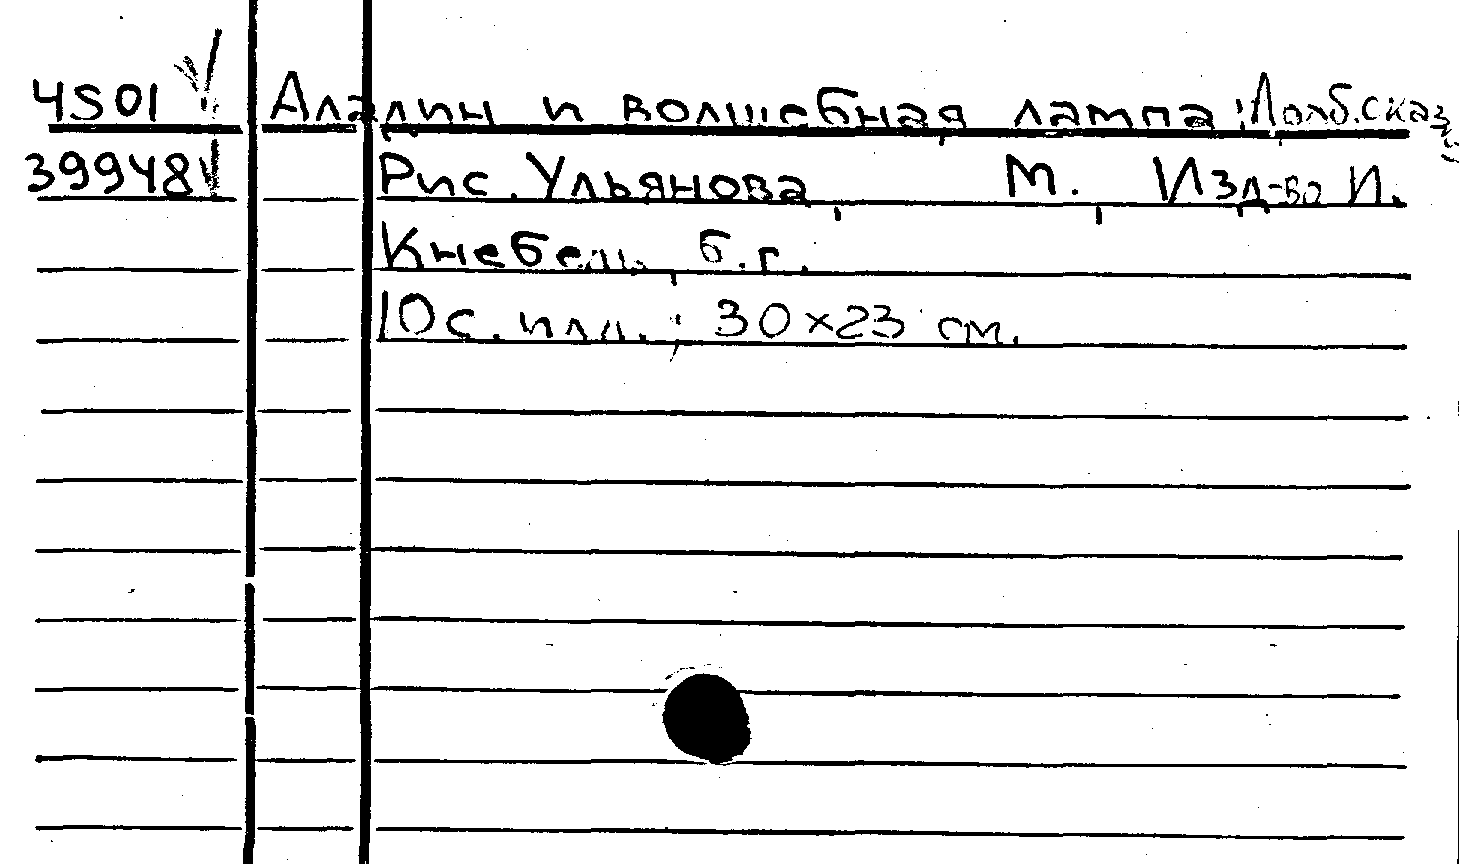 4501 Аладин и волшебная лампа; Арлб. сказ.
39948 Рис. Ульянова, М., Изд-во И.
Кнебель, б.г.
10 с. илл.; 30×23 см.